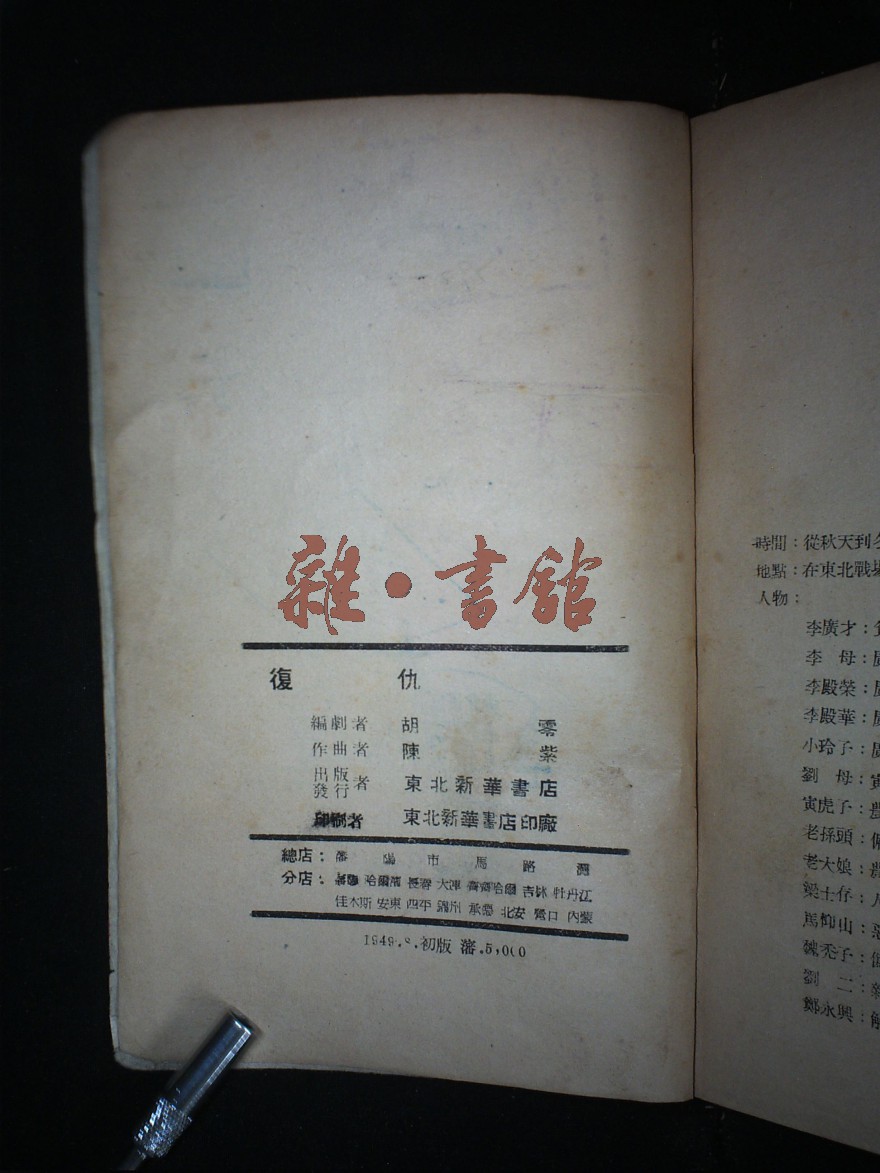 雜·書舘
復仇
編劇者 胡零
作曲者 陳紫
出版發行者 東北新華書店
印刷者 東北新華書店印廠
總店：瀋陽市馬路灣
分店：瀋陽 哈爾濱 長春 大連 齊齊哈爾 吉林 牡丹江
佳木斯 安東 四平 錦州 承德 北安 營口 內蒙
1949.8.初版 瀋.5,000
時間：從秋天到冬
地點：在東北戰場
人物：
李廣才：
李母：
李殿榮：
李殿華：
小玲子：
劉母：
寅虎子：
老孫頭：
老大娘：
梁士存：
馬仰山：
魏禿子：
劉二：
鄭永興：